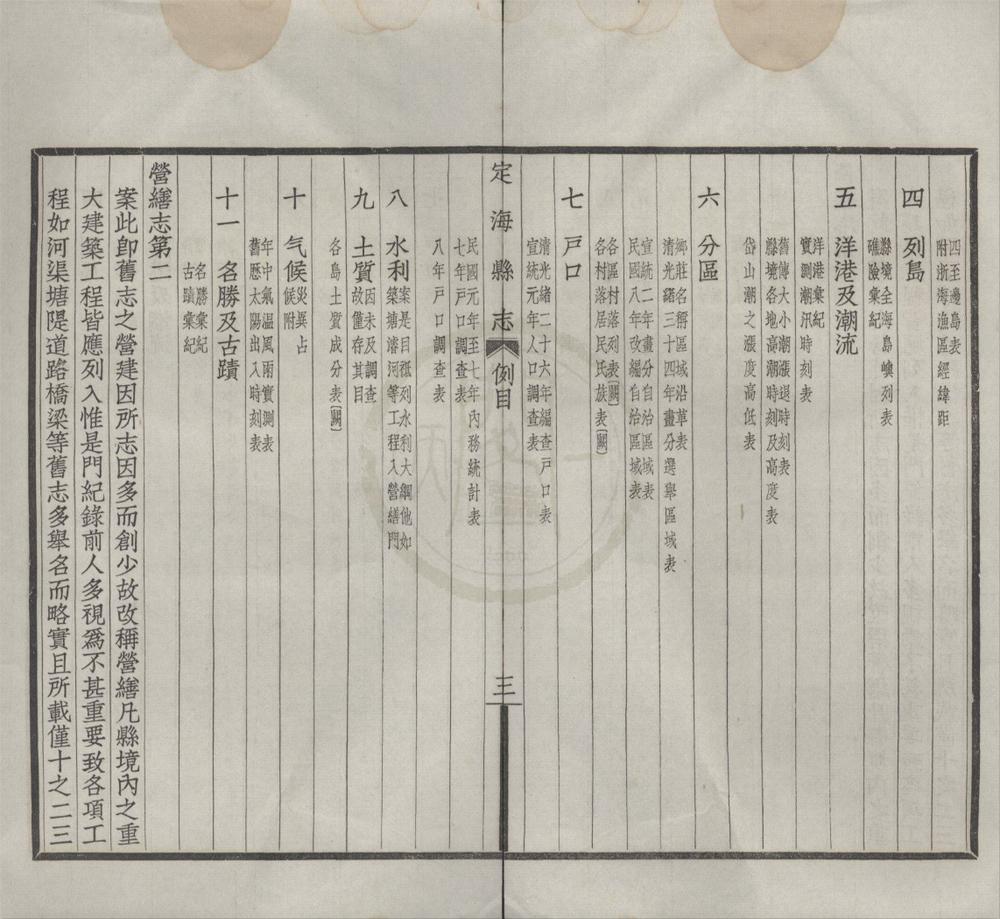 四至邊島表
附浙海漁區經緯距
四　列島
縣境全海島嶼列表
礁險彙紀
五　洋港及潮流
洋港彙紀
實測潮汛時刻表
舊傳大小潮漲退時刻表
縣境各地高潮時刻及高度表
岱山潮之漲度高低表
六　分區
鄉莊名稱區域沿革表
清光緒三十四年畫分選舉區域表
宣統二年畫分自治區域表
民國八年改編自治區域表
各區村落列表〔闕〕
各村落居民氏族表〔闕〕
七　戶口
清光緒二十六年編查戶口表
宣統元年人口調查表
定海縣志　例目　三
民國元年至七年內務統計表
七年戶口調查表
八年戶口調查表
八　水利案是目祇列水利大綱他如
築塘濬河等工程入營繕門
九　土質因未及調查
故僅存其目
各島土質成分表〔闕〕
十　气候災異占
候附
年中氣溫風雨實測表
舊歷太陽出入時刻表
十一　名勝及古蹟
名勝彙紀
古蹟彙紀
營繕志第二
案此卽舊志之營建因所志因多而創少故改稱營繕凡縣境內之重
大建築工程皆應列入惟是門紀錄前人多視爲不甚重要致各項工
程如河渠塘隄道路橋梁等舊志多舉名而略實且所載僅十之二三